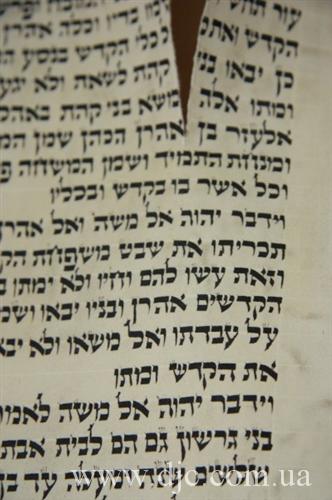 עור תחש בדיו וכלה אהרן
הקדש ואת כלי הקדש בנסע
כן יבאו בני קהת לשאת ולא
ומתו אלה משא בני קהת
אלעזר בן אהרן הכהן שמן
ומנחת התמיד ושמן המשחה
וכל אשר בו בקדש ובכליו
וידבר יהוה אל משה ואל אהרן
תכריתו את שבט משפחת
וזאת עשו להם וחיו ולא ימתו
הקדשים אהרן ובניו יבאו
על עבדתו ואל משאו ולא
את הקדש ומתו
וידבר יהוה אל משה
בני גרשון גם הם לבית
ומעלה עד בן
www.djc.com.ua